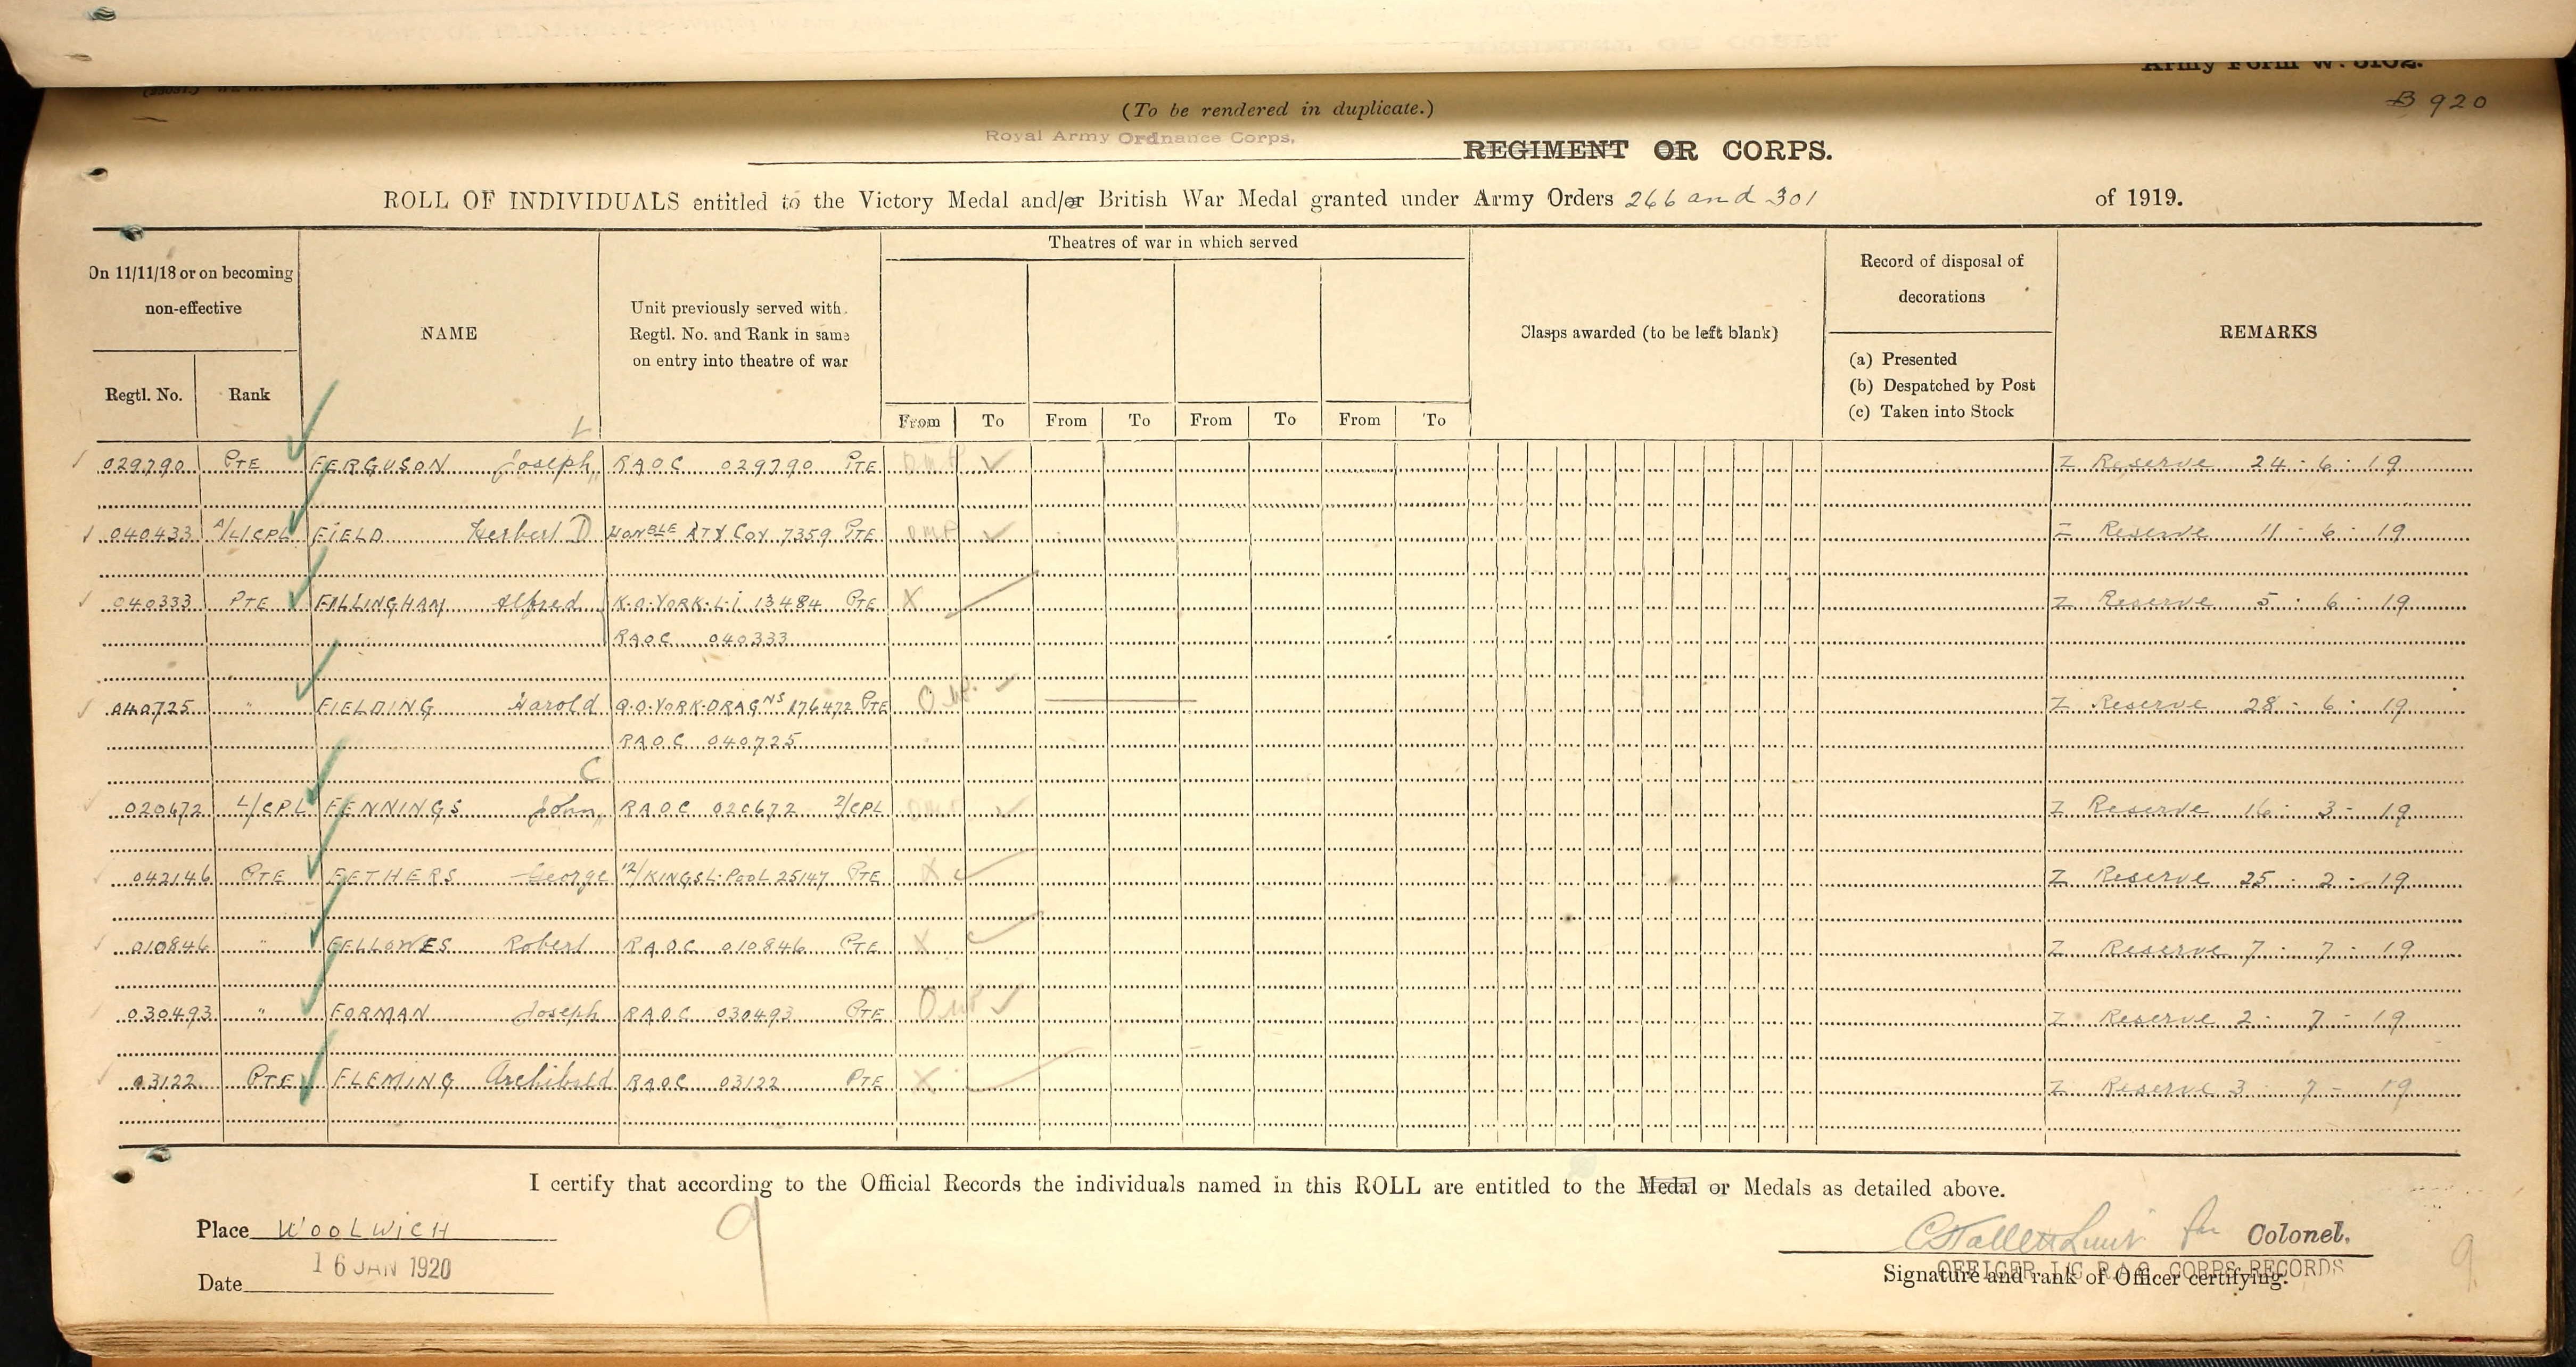 Army Form W. 5102.
B 920
(To be rendered in duplicate.)
Royal Army Ordnance Corps,
REGIMENT OR CORPS.
ROLL OF INDIVIDUALS entitled to the Victory Medal and/or British War Medal granted under Army Orders 266 and 301 of 1919.
On 11/11/18 or on becoming non-effective
Regtl. No.
Rank
NAME
Unit previously served with. Regtl. No. and Rank in same on entry into theatre of war
Theatres of war in which served
From To From To From To From To
Clasps awarded (to be left blank)
Record of disposal of decorations
(a) Presented
(b) Despatched by Post
(c) Taken into Stock
REMARKS
L
029790 PTE FERGUSON Joseph RAOC 029790 PTE Z Reserve 24 - 6 - 19
040433 A/L/CPL FIELD Herbert D HonBLE ATY Coy 7359 PTE Z Reserve 11 - 6 - 19
040333 PTE FILLINGHAM Alfred K.O.YORK.L.I. 13484 PTE X Z Reserve 5 - 6 - 19
RAOC 040333
040725 " FIELDING Harold Q.O.YORK.DRAGNS 176472 PTE Z Reserve 28 - 6 - 19
RAOC 040725
C
020672 L/CPL FENNINGS John RAOC 020672 2/CPL Z Reserve 16 - 3 - 19
042146 PTE FETHERS George 12/KINGS L.POOL 25147 PTE X Z Reserve 25 - 2 - 19
010846 " FELLOWES Robert RAOC 010846 PTE X Z Reserve 7 - 7 - 19
030493 " FORMAN Joseph RAOC 030493 PTE Z Reserve 2 - 7 - 19
03122 PTE FLEMING Archibald RAOC 03122 PTE X Z Reserve 3 - 7 - 19
I certify that according to the Official Records the individuals named in this ROLL are entitled to the Medal or Medals as detailed above.
Place WOOLWICH
16 JAN 1920
Date
9
for Colonel.
OFFICER I/C R.A.O. CORPS RECORDS
Signature and rank of Officer certifying.
9